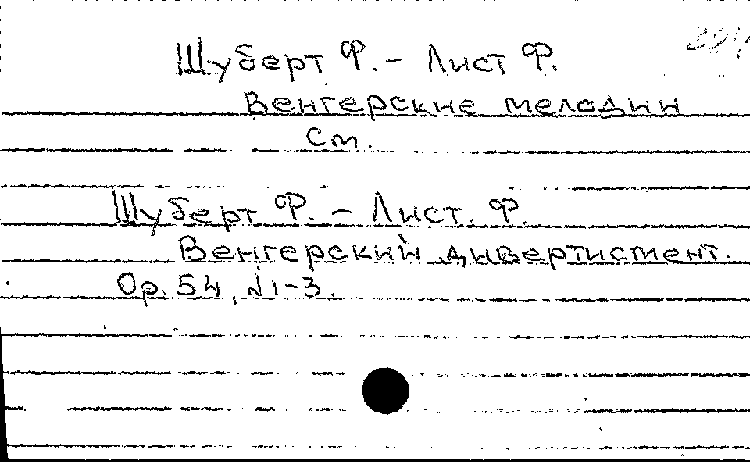 Шуберт Ф. – Лист Ф.
Венгерские мелодии
См.
Шуберт Ф. – Лист. Ф.
Венгерский дивертисмент.
Op. 54, №1-3.